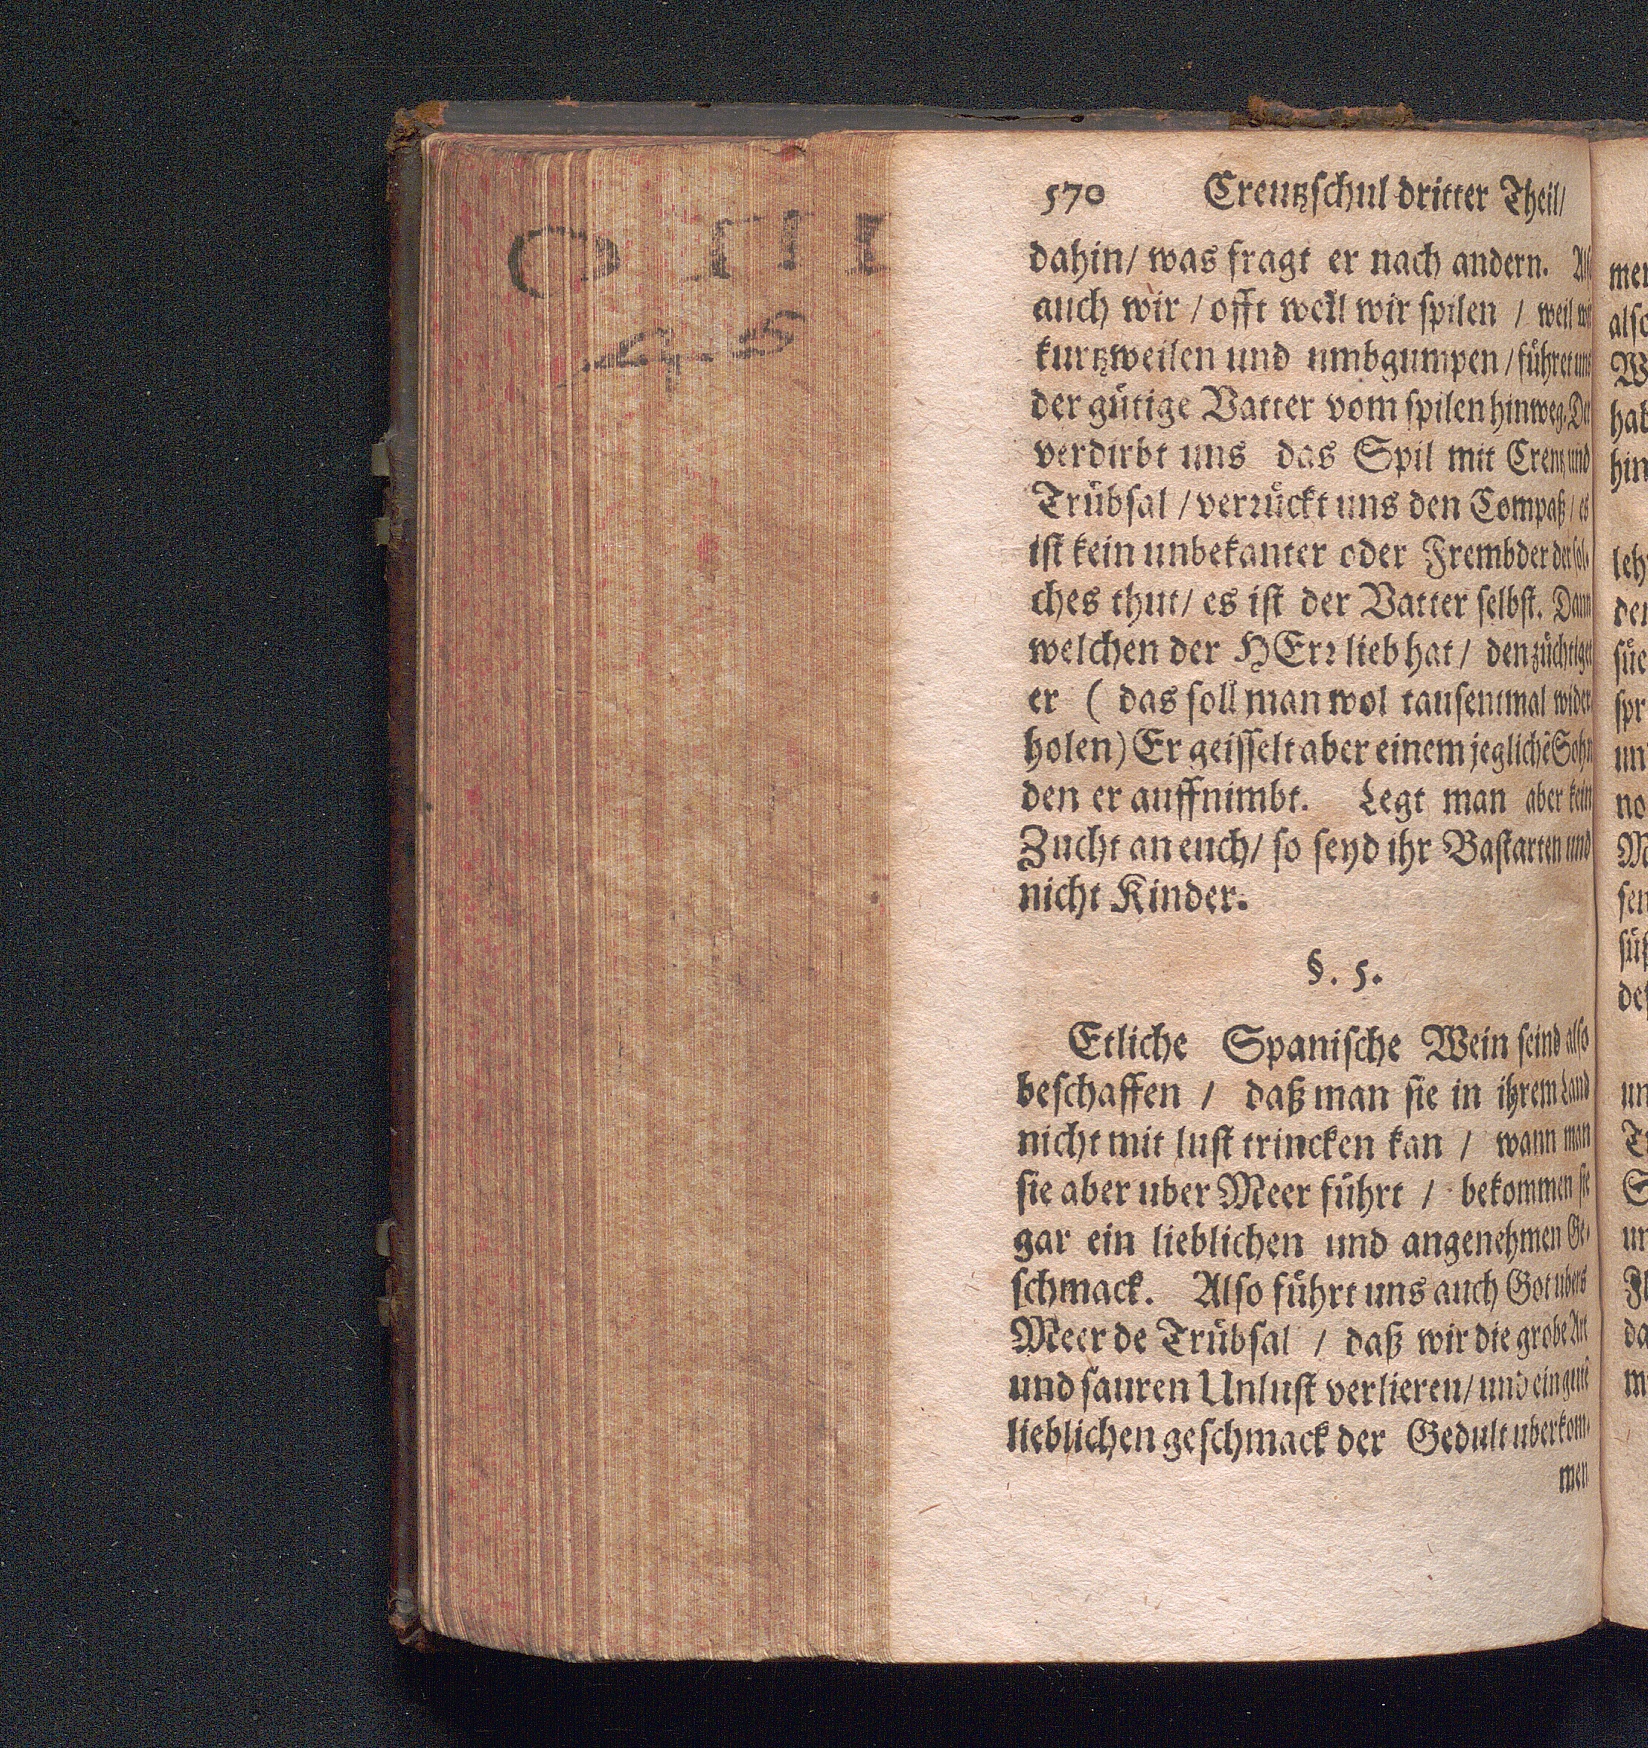 570 Creutzschul dritter Theil/
dahin/ was fragt er nach andern. Als
auch wir / offt weil wir spilen / weil wir
kurtzweilen und umbgumpen / führet uns
der gütige Vatter vom spilen hinweg. Der
verdirbt uns das Spil mit Creutz und
Trübsal / verrückt uns den Compaß / es
ist kein unbekanter oder Frembder der sol-
ches thut/ es ist der Vatter selbst. Dann
welchen der HErr lieb hat / den züchtiget
er ( das soll man wol tausentmal wider
holen) Er geisselt aber einem jeglichẽ Sohn
den er auffnimbt. Legt man aber kein
Zucht an euch/ so seyd ihr Bastarten und
nicht Kinder.
§. 5.
Etliche Spanische Wein seind also
beschaffen / daß man sie in ihrem Land
nicht mit lust trincken kan / wann man
sie aber uber Meer führt / bekommen sie
gar ein lieblichen und angenehmen Ge-
schmack. Also führt uns auch Got ubers
Meer de Trübsal / daß wir die grobe Art
und sauren Unlust verlieren/ und ein gutẽ
lieblichen geschmack der Gedult uberkom-
men